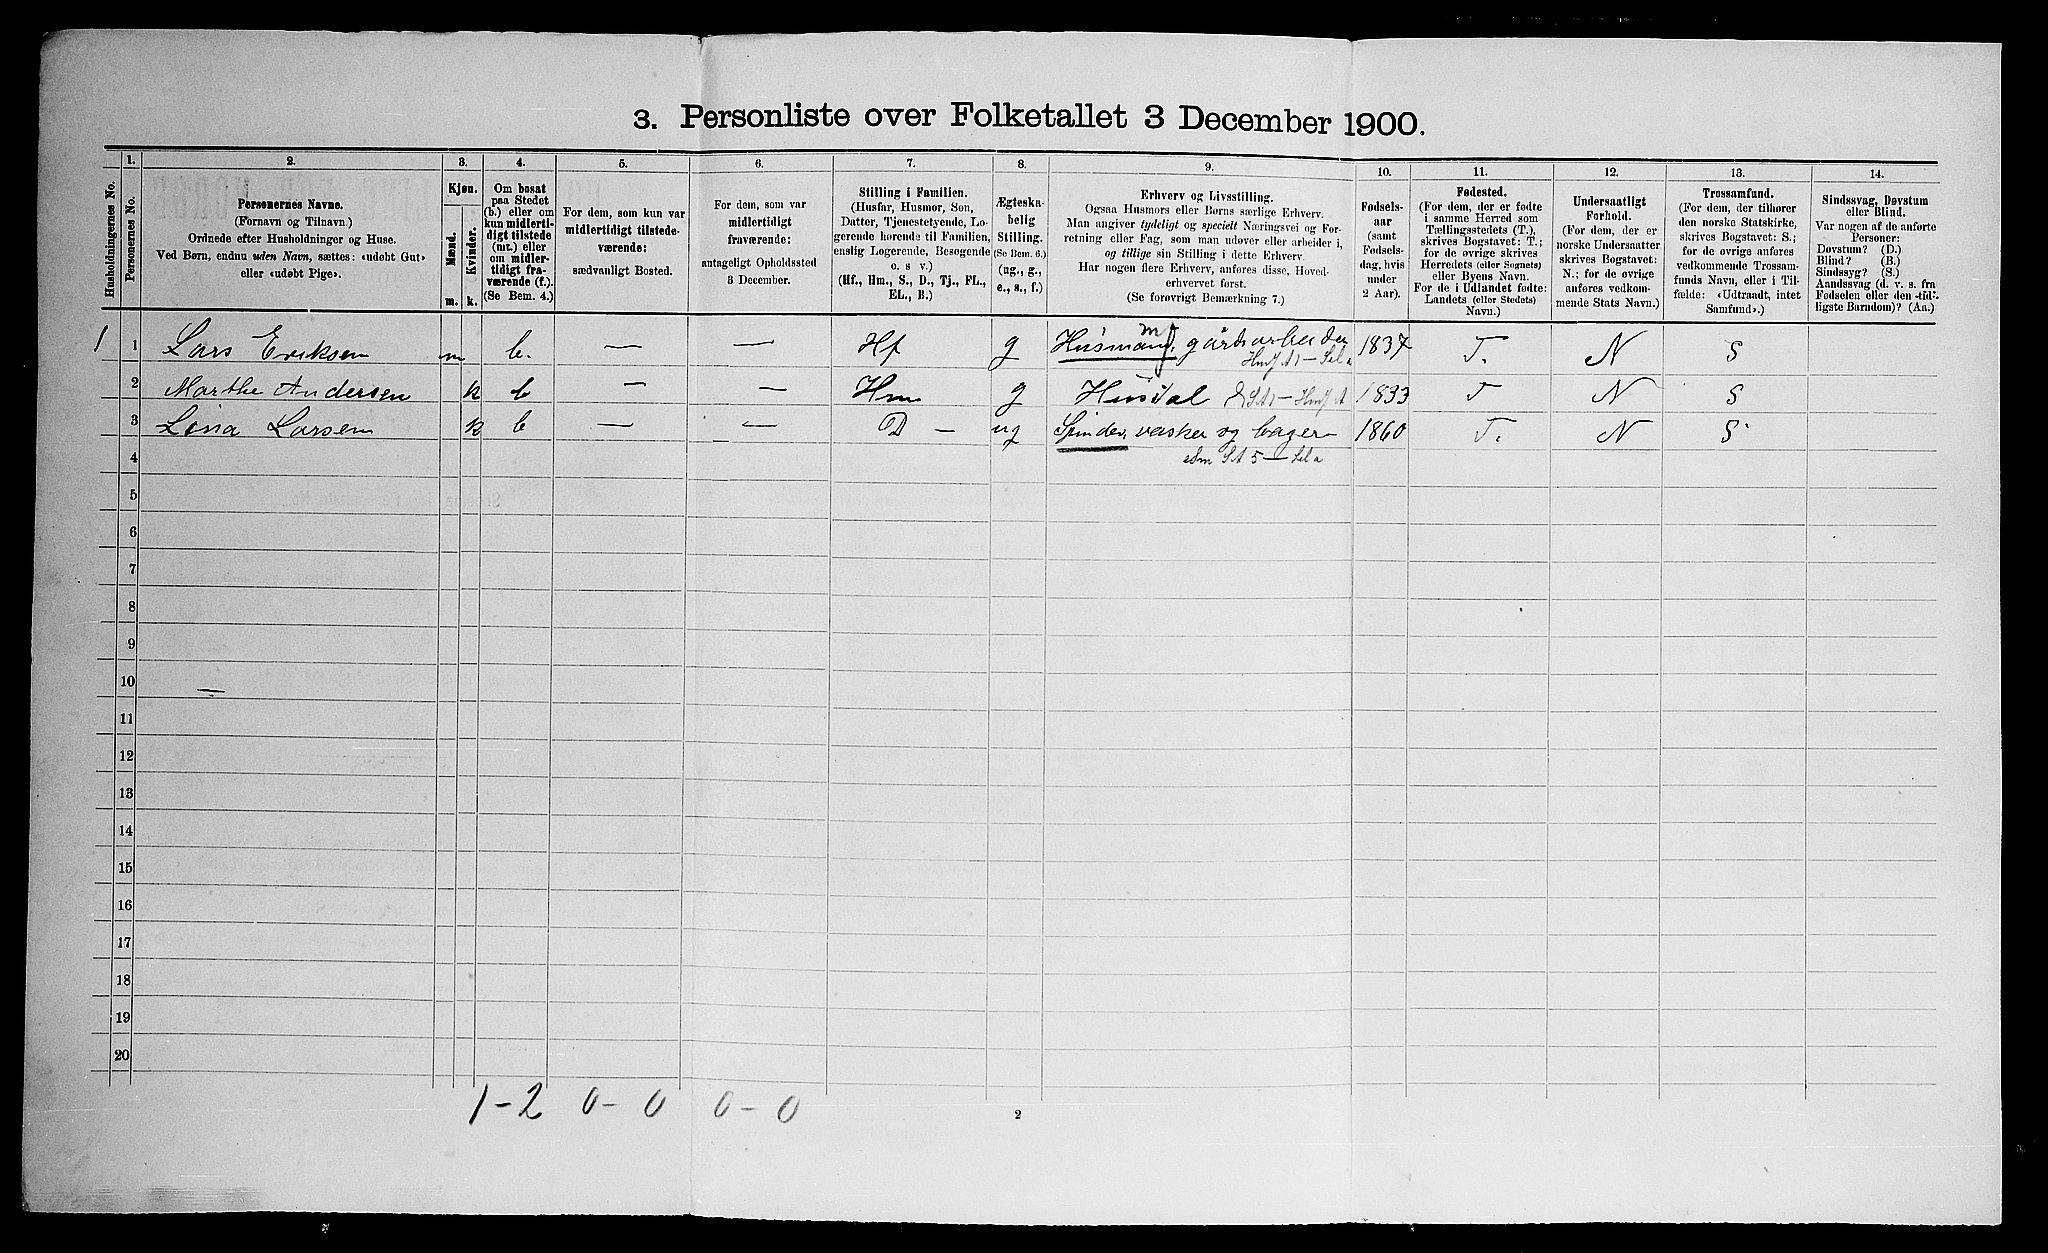 3. Personliste over Folketallet 3 December 1900.
Husholdningernes No.
1.
Personernes No.
2.
Personernes Navne.
(Fornavn og Tilnavn.)
Ordnede efter Husholdninger og Huse.
Ved Børn, endnu uden Navn, sættes: «udøbt Gut»
eller «udøbt Pige».
3.
Kjøn.
Mænd.
Kvinder.
m.
k.
4.
Om bosat
paa Stedet
(b.) eller om
kun midlerti-
digt tilstede
(mt.) eller
om midler-
tidigt fra-
værende (f.).
(Se Bem. 4.)
5.
For dem, som kun var
midlertidigt tilstede-
værende:
sædvanligt Bosted.
6.
For dem, som var
midlertidigt
fraværende:
antageligt Opholdssted
3 December.
7.
Stilling i Familien.
(Husfar, Husmor, Søn,
Datter, Tjenestetyende, Lo-
gerende hørende til Familien,
enslig Logerende, Besøgende
o. s v.)
(Hf., Hm., S., D., Tj., FL.,
EL., B.)
8.
Ægteska-
belig
Stilling.
(Se Bem. 6.)
(ug., g.,
e., s., f.)
9.
Erhverv og Livsstilling.
Ogsaa Husmors eller Børns særlige Erhverv.
Man angiver tydeligt og specielt Næringsvei og For-
retning eller Fag, som man udøver eller arbeider i,
og tillige sin Stilling i dette Erhverv.
Har nogen flere Erhverv, anføres disse, Hoved-
erhvervet først.
(Se forøvrigt Bemærkning 7.)
10.
Fødsels-
aar
(samt
Fødsels-
dag, hvis
under
2 Aar).
11.
Fødested.
(For dem, der er fødte
i samme Herred som
Tællingsstedets (T.),
skrives Bogstavet: T.;
for de øvrige skrives
Herredets (eller Sognets)
eller Byens Navn.
For de i Udlandet fødte:
Landets (eller Stedets)
Navn.)
12.
Undersaatligt
Forhold.
(For dem, der er
norske Undersaatter
skrives Bogstavet:
N.; for de øvrige
anføres vedkom-
mende Stats Navn.)
13.
Trossamfund.
(For dem, der tilhører
den norske Statskirke,
skrives Bogstavet: S.;
for de øvrige anføres
vedkommende Trossam-
funds Navn, eller i Til-
fælde: «Udtraadt, intet
Samfund».)
14.
Sindssvag, Døvstum
eller Blind.
Var nogen af de anførte
Personer:
Døvstum? (D.)
Blind? (B.)
Sindssyg? (S.)
Aandssvag (d. v. s. fra
Fødselen eller den tid-
ligste Barndom)? (Aa.)
1 1 Lars Eriksen m b. — — Hf g Husmand m/J, gårdarbeider 1837 T. N S
2 Marthe Andersen k b — — Hm g Husdal 1833 T N S
3 Lina Larsen k b — — D — ug Spinder, vasker og bager — 1860 T. N S
4
5
6
7
8
9
10
11
12
13
14
15
16
17
18
19
20
1 – 2 0 – 0 0 – 0
2